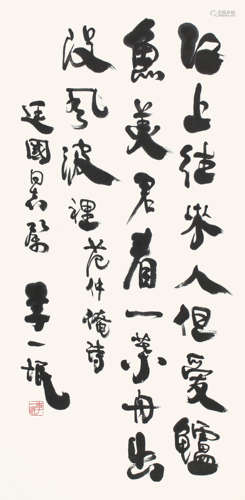 江上往来人但愛鱸
魚美君看一葉舟出
没風波裡 范仲淹詩
廷國同志属 李一氓